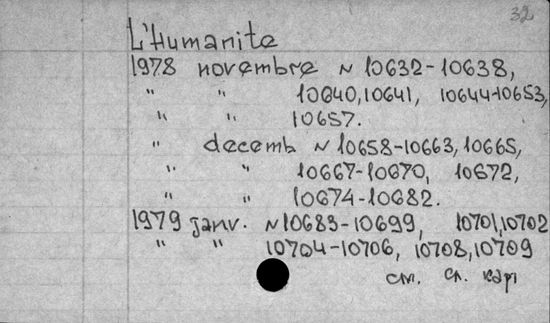 32
L'Humanite
1978 novembre N 10632-10638,
" " 10640,10641, 10644-10653,
" " 10657.
" decemb N 10658-10663, 10665,
" " 10667-10670, 10672,
" " 10674-10682.
1979 janv. N 10683-10699, 10701,10702
" " 10704-10706, 10708,10709
см. сл. кар